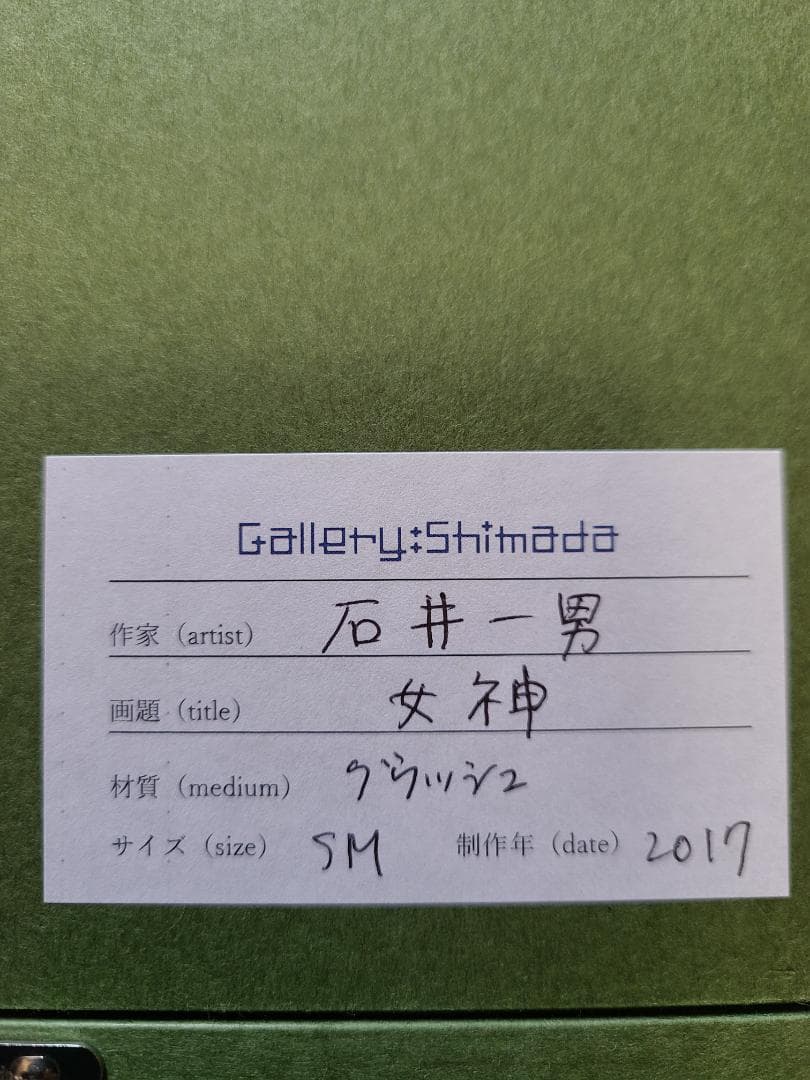 Gallery:Shimada
作家（artist） 石井一男
画題（title） 女神
材質（medium） グワッシュ
サイズ（size） SM 制作年（date） 2017